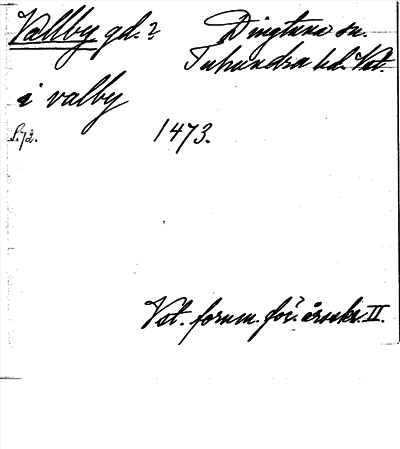 Vallby gd.?
Dingtuna sn.
Tuhundra hd. Vst.
i valby
s. 72.
1473.
Vst. fornm. för. årsskr. II.